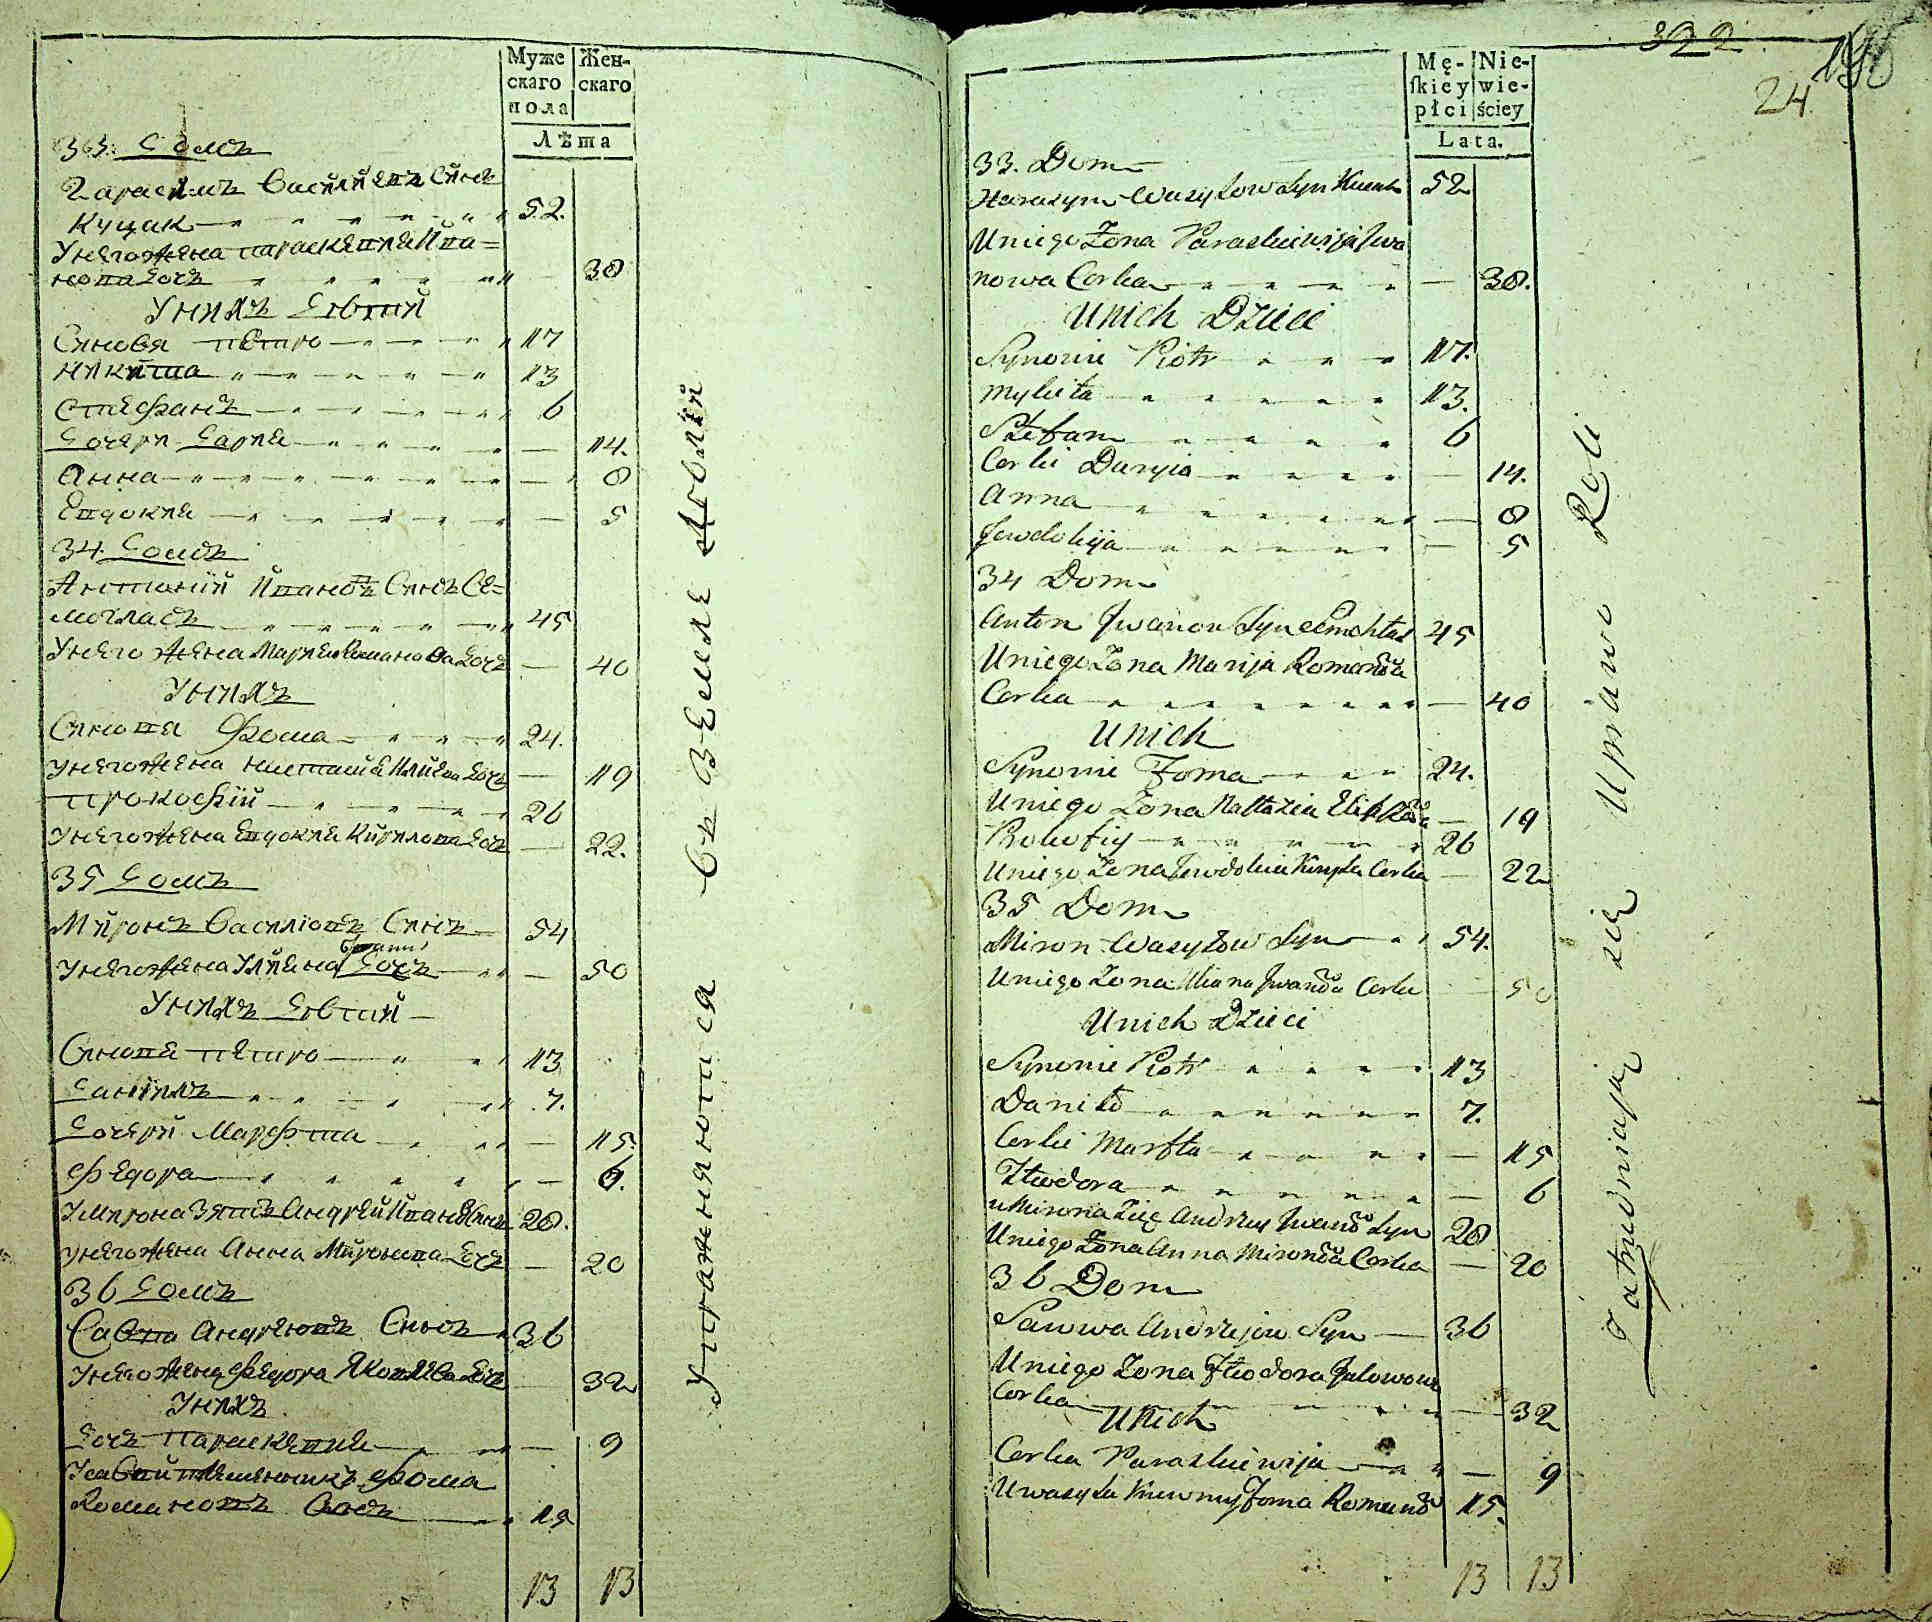 Муже
скаго
пола
Жен-
скаго
Лѣта
33. Домъ
Гарасимъ Василиевъ Синъ
Куцак 52.
Унего Жена Параскевия Ива=
нова Дочь 38
У нихъ Дѣти
Синовя Петро 17
Никита 13
Стефанъ 6
Дочери Дария 14.
Анна 8
Евдокия 5
34. Домъ
Антоний Иванов Синъ Се=
45
Унего Жена Мария Романова Дочь 40
У нихъ
Синовя Фома 24.
Унего Жена Дочь 19
Прокофий 26
Унего Жена Евдокия Кирилова Дочь 22.
35 Домъ
Миронъ Василиовъ Синъ 54
Унего Жена Улияна Дочь 50
У нихъ Дѣти
Синовя Петро 13
Данилъ 7.
Дочери Марфта 15.
Федора 6.
У Мирона Зять Андрей Иванов Синъ 28.
Унего Жена Анна Миронова Дочь 20
36 Домъ
Савва Андреювъ Синъ 36
Унего Жена Федора Яковлева Дочь 32
У нихъ
Дочь Параскевия 9
Племенникъ Фома
Романовъ Синъ 15
13 13
Упражняются въ Земле Дѣлии
322
24
Mę-
skiey
płci
Nie-
wie-
ściey
Lata.
33. Dom
Harasym Wasylow Syn Kucak 52
Uniego Zona Paraskiewija Iwa
nowa Corka 38.
Unich Dzieci
Synowie Piotr 17.
Mykita 13.
Stefan 6
Corki Daryia 14.
Anna 8
Jewdokija 5
34 Dom
Anton Iwanow Syn 45
Uniego Zona Marija Romanowa
Corka 40
Unich
Synowie Foma 24.
Uniego Zona Nastazia 19
Prokofiy 26
Uniego Zona Jewdokia Kiryła Corka 22
35 Dom
Miron Wasylow Syn 54.
Uniego Zona Uliana Iwanowa Corka 50
Unich Dzieci
Synowie Piotr 13
Daniło 7.
Corki Marfta 15
Fteodora 6
u Mirona Zięć Andrzey Iwanow Syn 28
Uniego Zona Anna Mironowa Corka 20
36 Dom
Sawwa Andrzejow Syn 36
Uniego Zona Fteodora Jakowowa
Corka 32
Unich
Corka Paraskiewija 9
Foma Romanow 15.
13 13
Zatrudniają się Uprawą Roli